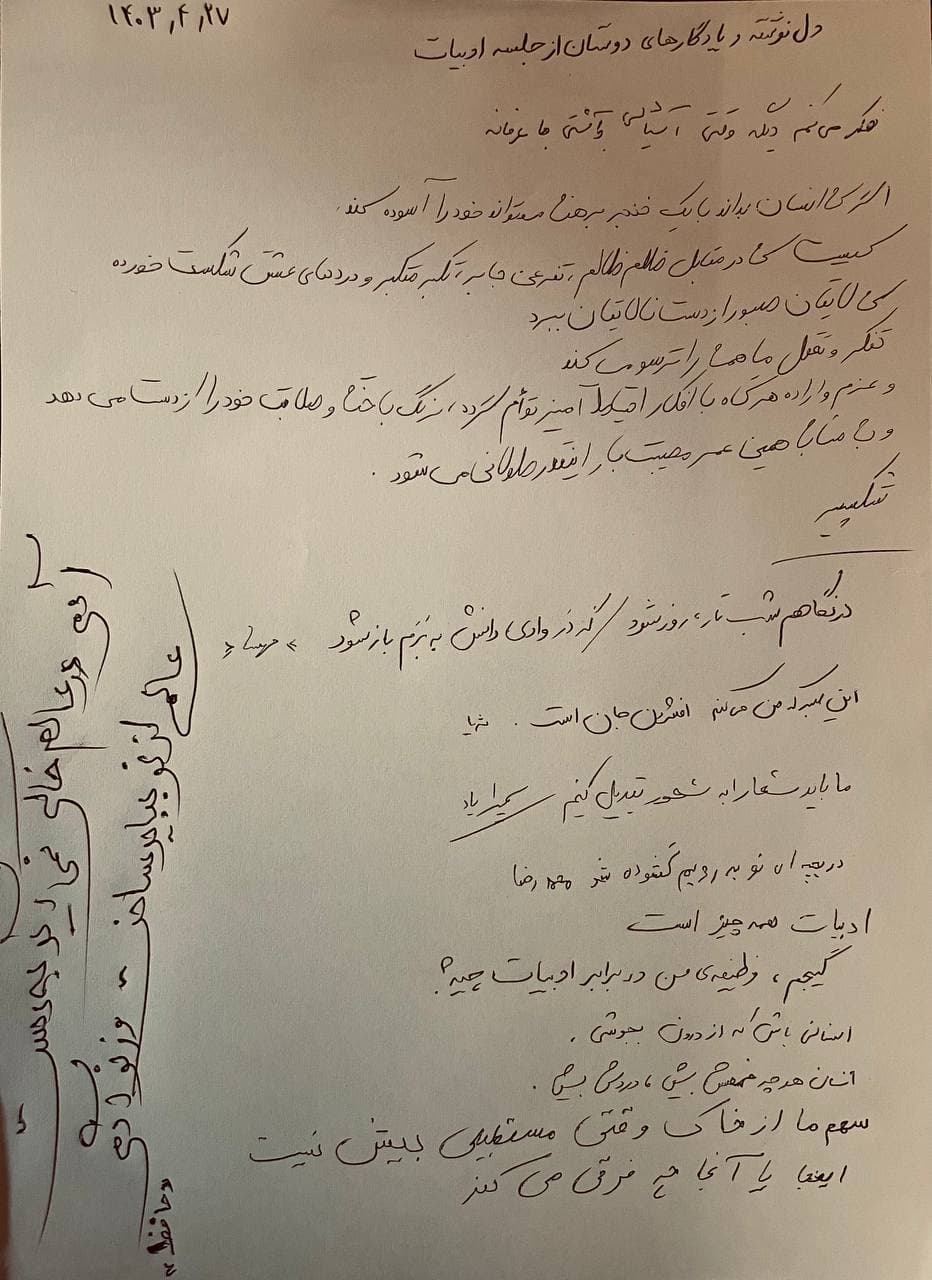 ۱۴۰۳٫۴٫۲۷
دل نوشته و یادگارهای دوستان از جلسه ادبیات
فکر می‌کنم دیگه وقتی آشتی با عرفانه
اگر که انسان بداند با یک خنجر برهنه میتواند خود را آسوده کند.
کیست که در مقابل ظلم ظالم، تفرعن جابر، تکبر متکبر و دردهای عشق شکست خورده
که لایقان صبور از دست نالایقان ببرد
تفکر و تعقل ما همه را ترسو می کند
و عزم و اراده هرگاه با افکار احتیاط آمیز توأم گردد، رنگ باخته و صلابت خود را از دست می دهد
و به مثابه همین عمر مصیبت بار اینقدر طولانی می شود.
شکسپیر
در نگاهم شب تار، روز شود / گر در وادی دانش به بزم باز شود «مهسا»
این صبر که من می‌کنم افشردن جان است. ثریا
ما باید شعار را به شعور تبدیل کنیم سمیرا یاد
دریچه ای نو به رویم گشوده شد محمد رضا
ادبیات همه چیز است
گیجم، وظیفه‌ی من در برابر ادبیات چیه؟
انسانی باش که از درون بجوشی.
انسان هر چه فهمش بیش، دردش بیش.
سهم ما از خاک وقتی مستطیلی بیش نیست
اینجا یا آنجا چه فرقی می کند
آدمی در عالم خاکی نمی آید به دست
عالمی از نو بباید ساخت وز نو آدمی
«حافظ»